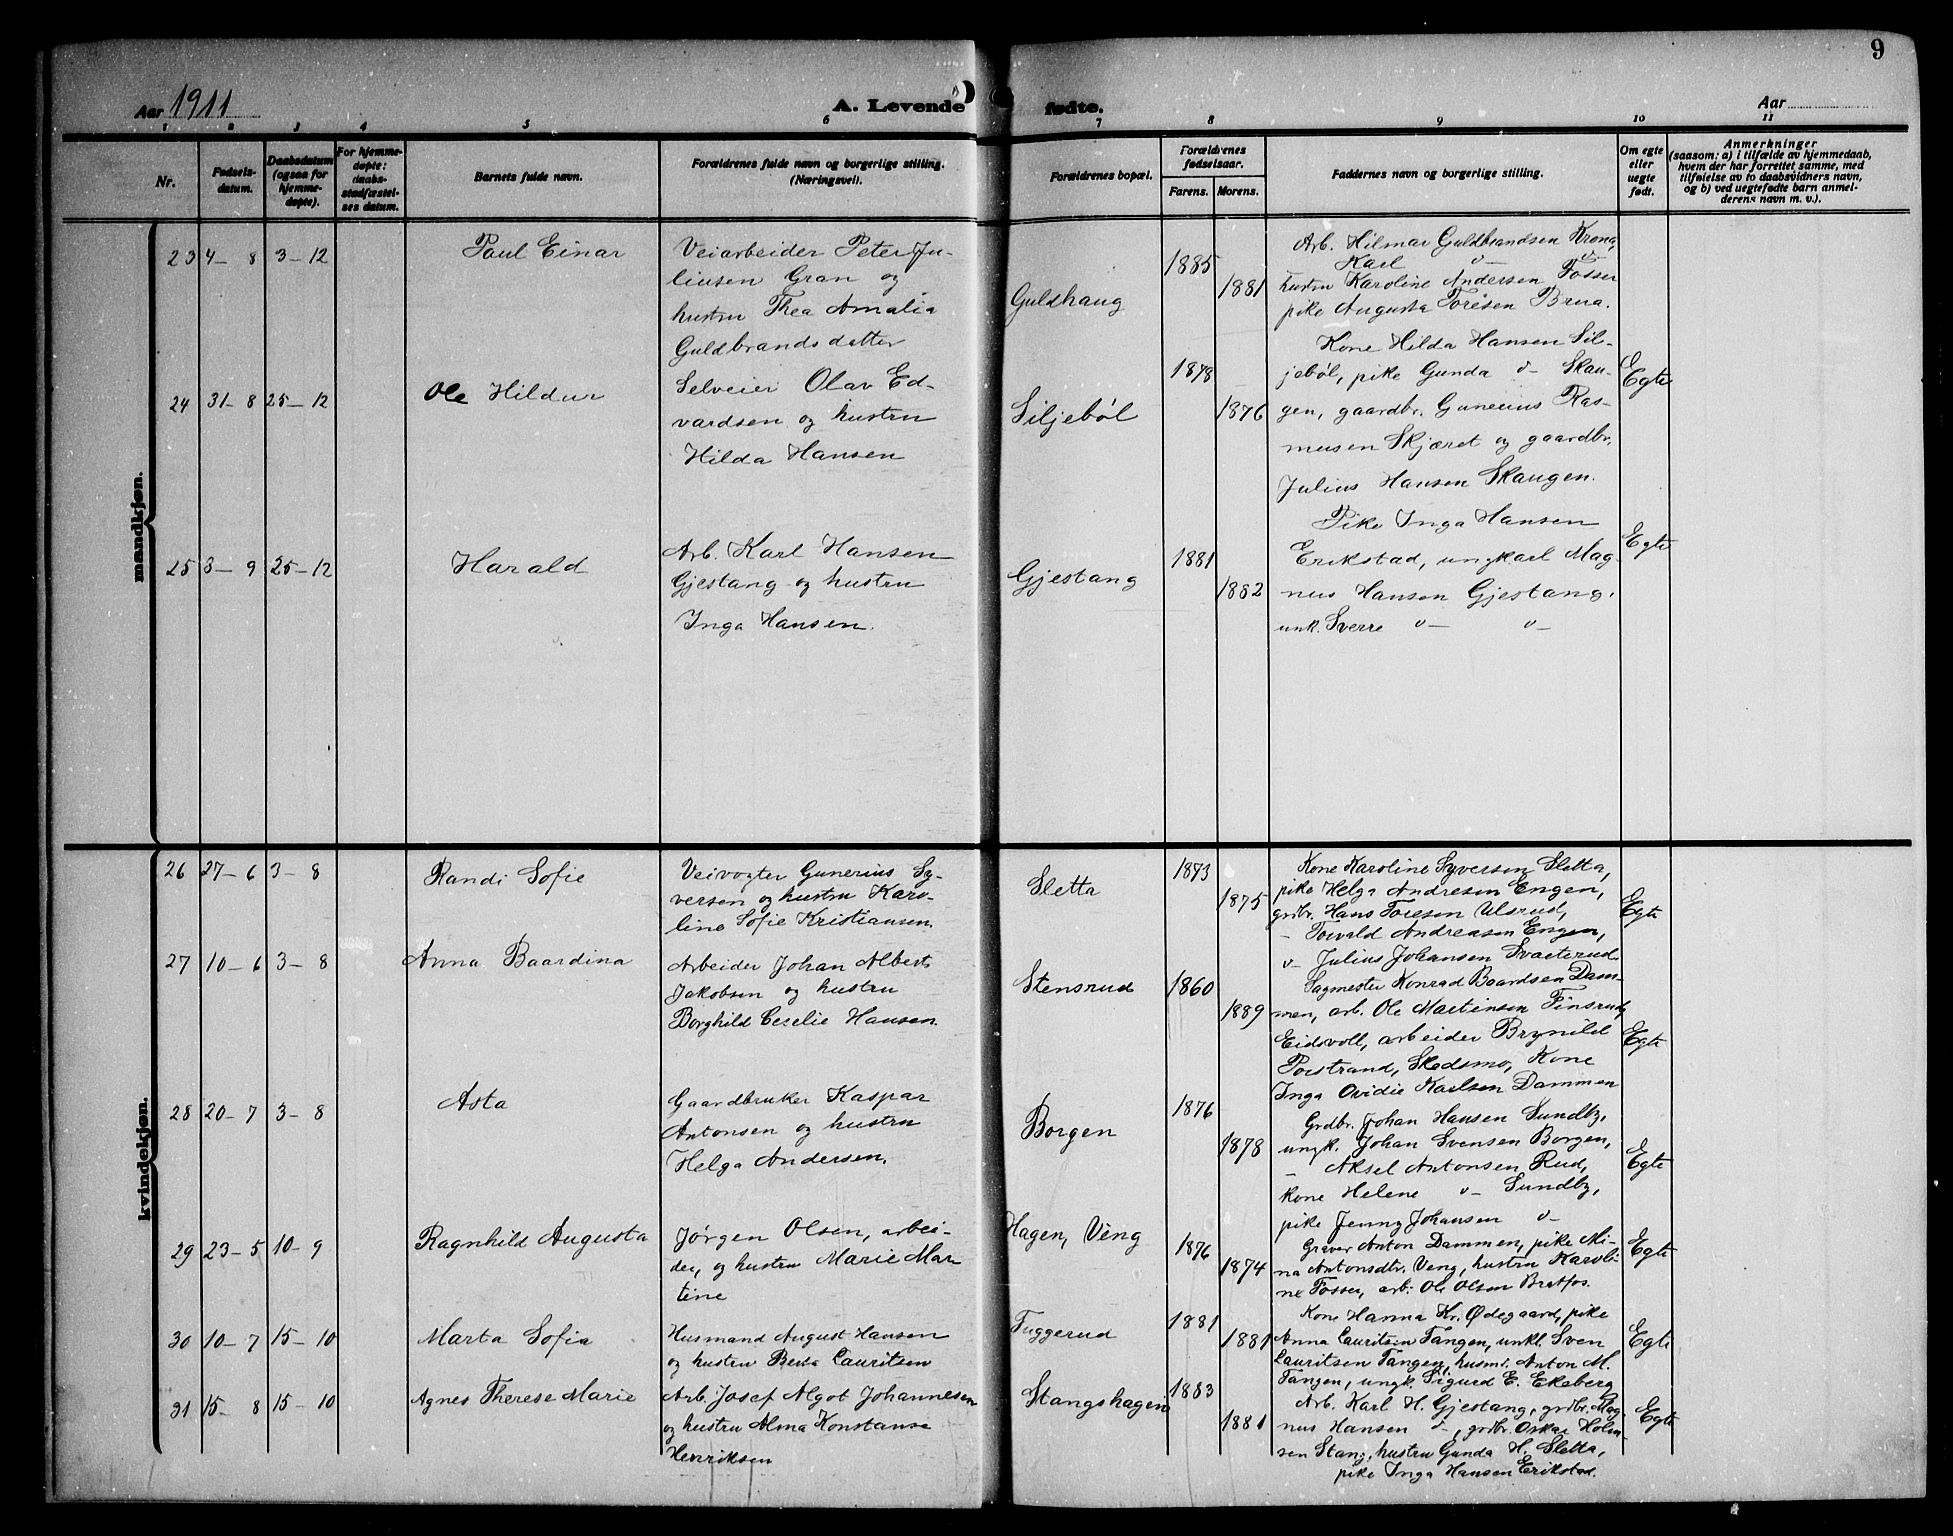 9
Aar 1911
A. Levende
fødte.
Aar
1 2 3 4 5 6 7 8 9 10 11
Nr.
Fødsels-
datum.
Daabsdatum
(ogsaa for
hjemme-
døpte).
For hjemme-
døpte:
daabs-
stadfæstel-
ses datum.
Barnets fulde navn.
Forældrenes fulde navn og borgerlige stilling.
(Næringsvei).
Forældrenes bopæl.
Forældrenes
fødselsaar.
Farens. Morens.
Faddernes navn og borgerlige stilling.
Om egte
eller
uegte
født.
Anmerkninger
(saasom: a) i tilfælde av hjemmedaab,
hvem der har forrettet samme, med
tilføielse av to daabsvidners navn,
og b) ved uegtefødte barn anmel-
derens navn m. v.).
mandkjøn.
23 4-8 3-12
Paul Einar
Veiarbeider Peter Ju-
liusen Gran og
hustru Thea Amalia
Guldbrandsdatter
Guldhaug
1885
1881
Arb. Hilmar Guldbrandsen Krona,
Karl -"- "
hustru Karoline Andersen Fosser
pike Augusta Toresen Brua.
24 31-8 25-12
Ole Hildur
Selveier Olav Ed-
vardsen og hustru
Hilda Hansen
Siljebøl
1878
1876
Kone Hilda Hansen Sil-
jebøl, pike Gunda -"- Skau-
gen, gaardbr. Gunerius Ras-
mussen Skjæret og gaardbr.
Julius Hansen Skaugen.
Egte
25 3-9 25-12
Harald
Arb. Karl Hansen
Gjestang og hustru
Inga Hansen.
Gjestang
1881
1882
Pike Inga Hansen
Erikstad, ungkarl Mag-
nus Hansen Gjestang,
unk. Sverre -"- -"-
Egte
kvindekjøn.
26 27-6 3-8
Randi Sofie
Veivogter Gunerius Sy-
versen og hustru Karo-
line Sofie Kristiansen.
Sletta
1873
1875
Kone Karoline Syversen Sletta,
pike Helga Andresen Engen,
grdbr. Hans Toresen Ulsrud,
- Torvald Andreasen Engen,
-"- Julius Johansen Svaeterud
Egte
27 10-6 3-8
Anna Baardina
Arbeider Johan Albert
Jakobsen og hustru
Borghild Cecelie Hansen.
Stensrud
1860
1889
Sagmester Konrad Baardsen Dam-
men, arb. Ole Martinsen Finsrud,
Eidsvoll, arbeider Brynild
Porstrand, Skedsmo, Kone
Inga Ovidie Karlsen Dammen
Egte
28 20-7 3-8
Asta
Gaardbruker Kaspar
Antonsen og hustru
Helga Andersen.
Borgen
1876
1878
Grdbr. Johan Hansen Sundby,
ungk. Johan Svensen Borgen,
- Aksel Antonsen Rud,
kone Helene -"- Sundby,
pike Jenny Johansen -"-
Egte
29 23-5 10-9
Ragnhild Augusta
Jørgen Olsen, arbei-
der, og hustru Marie Mar-
tine
Hagen, Veng
1876
1874
Graver Anton Dammen, pike Mi-
na Antonsdtr. Veng, hustru Karoli-
ne Fosser, arb. Ole Olsen Bratfos.
Egte
30 10-7 15-10
Marta Sofia
Husmand August Hansen
og hustru Berta Lauritsen
Tuggerud
1881
1881
Kone Hanna Kr. Ødegaard, pike
Anna Lauritsen Tangen, unkl. Sven
Lauritsen Tangen, husm. Anton M.
Tangen, ungk. Sigurd E. Ekeberg
Egte
31 15-8 15-10
Agnes Therese Marie
Arb. Josef Algot Johannesen
og hustru Alma Konstanse
Henriksen
Stangshagen
1883
1881
Arb. Karl H. Gjestang, grdbr. Mag-
nus Hansen -"-, grdbr. Oskar Holm-
sen Stang, hustru Gunda H. Sletta,
pike Inga Hansen Erikstad.
Egte